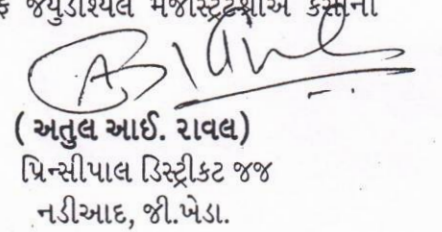 જ્યુડીશ્યલ મેજીસ્ટ્રેટશ્રીએ
( અતુલ આઈ. રાવલ)
પ્રિન્સીપાલ ડિસ્ટ્રીકટ જજ
નડીઆદ, જી.ખેડા.